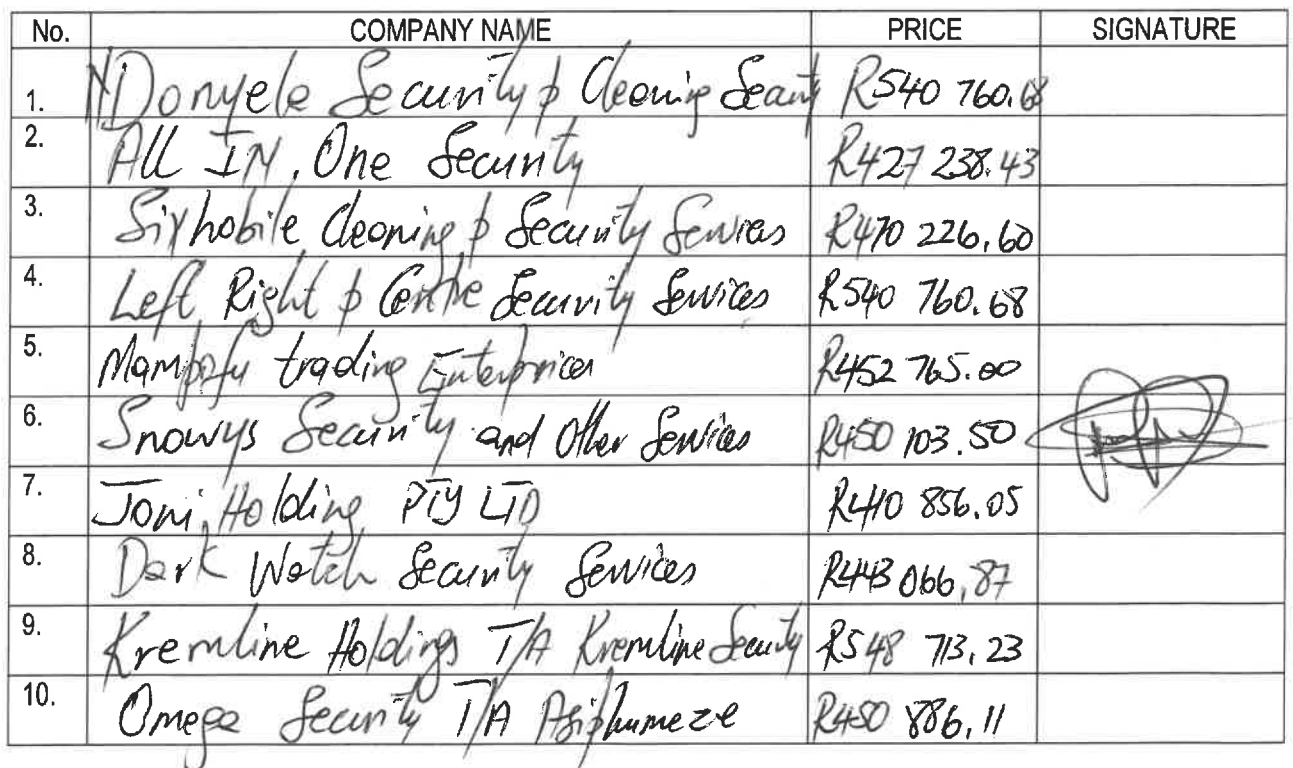 No. COMPANY NAME PRICE SIGNATURE
1. NDonyela Security & Cleaning Security R540 760.68
2. All IN One Security R427 238.43
3. Sixhobile Cleaning & Security Services R470 226,60
4. Left Right & Centre Security Services R540 760.68
5. Mampofu trading Enterprices R452 765.00
6. Snowys Security and Other Services R450 103.50
7. Joni Holding PTY LTD R440 856.05
8. Dark Watch Security Services R443 066,87
9. Kremline Holdings T/A Kremline Security R548 713,23
10. Omega Security T/A Asiphumeze R450 886,11